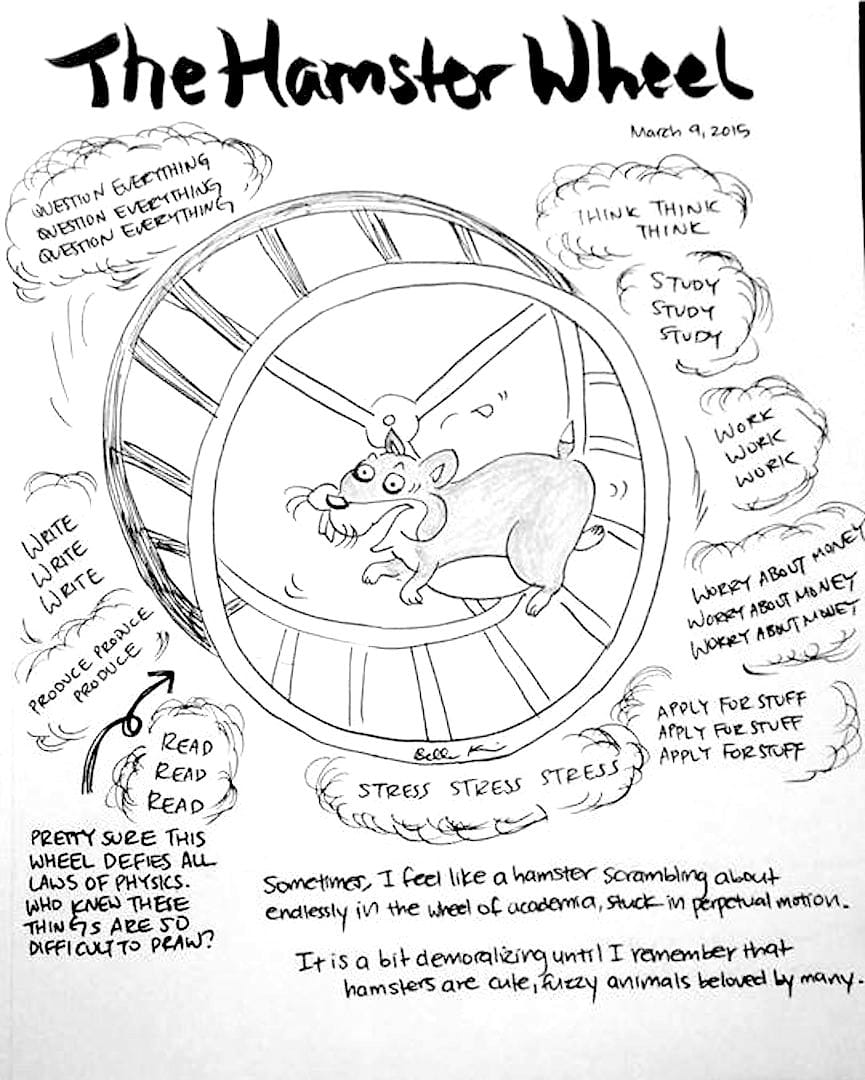 The Hamster Wheel
March 9, 2015
QUESTION EVERYTHING
QUESTION EVERYTHING
QUESTION EVERYTHING
THINK THINK
THINK
STUDY
STUDY
STUDY
WORK
WORK
WORK
WORRY ABOUT MONEY
WORRY ABOUT MONEY
WORRY ABOUT MONEY
APPLY FOR STUFF
APPLY FOR STUFF
APPLY FOR STUFF
STRESS STRESS STRESS
READ
READ
READ
PRODUCE PRODUCE
PRODUCE
WRITE
WRITE
WRITE
PRETTY SURE THIS
WHEEL DEFIES ALL
LAWS OF PHYSICS.
WHO KNEW THESE
THINGS ARE SO
DIFFICULT TO DRAW?
Sometimes, I feel like a hamster scrambling about
endlessly in the wheel of academia, stuck in perpetual motion.
It is a bit demoralizing until I remember that
hamsters are cute, fuzzy animals beloved by many.